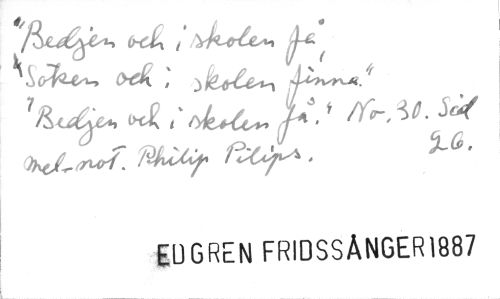 "Bedjen och i skolen få,
"Söken och i skolen finna."
"Bedjen och i skolen få." No. 30. Sid
mel-not. Philip Pilips. 26.
EDGREN FRIDSSÅNGER 1887